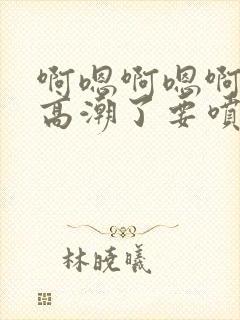 啊嗯啊嗯啊
高潮了要喷
林晓曦